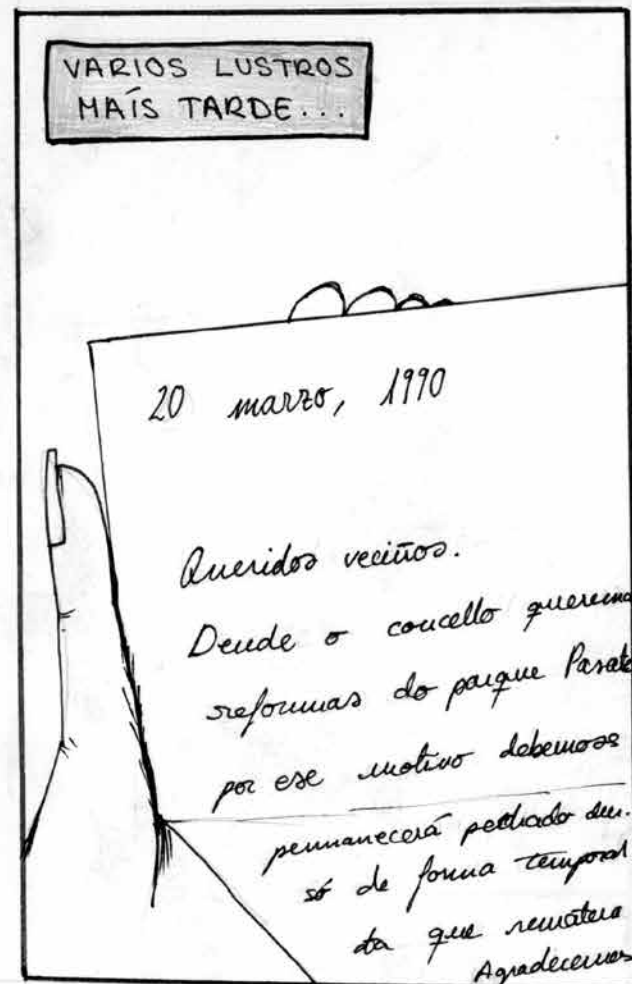 VARIOS LUSTROS
MAÍS TARDE...
20 marzo, 1990
Queridos veciños.
Dende o concello queremo
reformas do parque Pasate
por ese motivo debemos
permanecerá pechado du
só de forma temporal
ta que rematen
Agradecemos